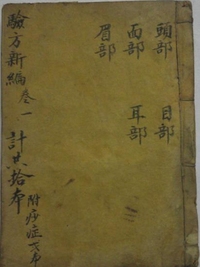 頭部 目部
面部 耳部
眉部
驗方新編 卷一
計共拾本
附痧症